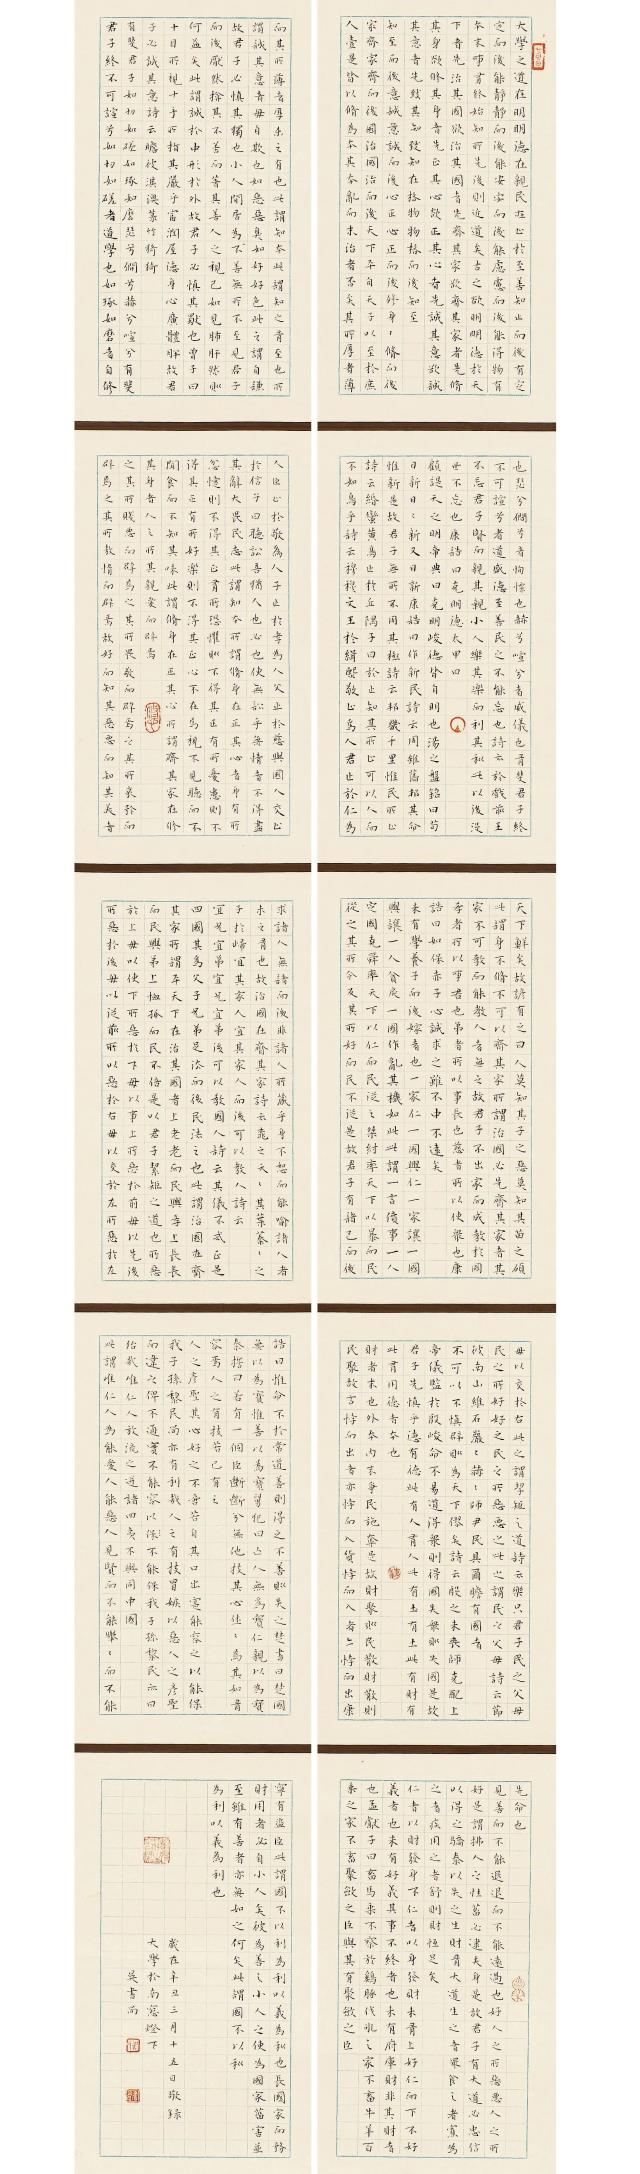 大學之道在明明德在親民在止於至善知止而後有定
定而後能靜靜而後能安安而後能慮慮而後能得物有
本末事有終始知所先後則近道矣古之欲明明德於天
下者先治其國欲治其國者先齊其家欲齊其家者先脩
其身欲脩其身者先正其心欲正其心者先誠其意欲誠
其意者先致其知致知在格物物格而後知至
知至而後意誠意誠而後心正心正而後修身〻脩而後
家齊家齊而後國治國治而後天下平自天子以至於庶
人壹是皆以脩為本其本亂而末治者否矣其所厚者薄
而其所薄者厚未之有也此謂知本此謂知之者至也所
謂誠其意者毋自欺也如惡惡臭如好好色此之謂自謙
故君子必慎其獨也小人閒居為不善無所不至見君子
而後厭然揜其不善而著其善人之視己如見肺肝然則
何益矣此謂誠於中形於外故君子必慎其獨也曾子曰
十目所視十手所指其嚴乎富潤屋德身心廣體胖故君
子必誠其意詩云瞻彼淇澳菉竹猗猗
有斐君子如切如磋如琢如磨瑟兮僩兮赫兮喧兮有斐
君子終不可諠兮如切如磋者道學也如琢如磨者自脩
也瑟兮僩兮者恂慄也赫兮喧兮者威儀也有斐君子終
不可諠兮者道盛德至善民之不能忘也詩云於戲前王
不忘君子賢而親其親小人樂其樂而利其利此以後沒
世不忘也康誥曰克明德太甲曰
顧諟天之明命帝典曰克明峻德皆自明也湯之盤銘曰苟
日新日〻新又日新康誥曰作新民詩云周雖舊邦其命
惟新是故君子無所不用其極詩云邦畿千里惟民所止
詩云緡蠻黃鳥止於丘隅子曰於止知其所止可以人而
不如鳥乎詩云穆穆文王於緝熙敬止為人君止於仁為
人臣止於敬為人子止於孝為人父止於慈與國人交止
於信子曰聽訟吾猶人也必也使無訟乎無情者不得盡
其辭大畏民志此謂知本所謂脩身在正其心者身有所
忿懥則不得其正有所恐懼則不得其正有所憂患則不
得其正有所好樂則不得其正心不在焉視不見聽而不
聞食而不知其味此謂脩身在正其心所謂齊其家在脩
其身者人之所其親愛而辟焉
之其所賤惡而辟焉之其所畏敬而辟焉之其所哀矜而
辟焉之其所敖惰而辟焉故好而知其惡惡而知其美者
天下鮮矣故諺有之曰人莫知其子之惡莫知其苗之碩
此謂身不脩不可以齊其家所謂治國必先齊其家者其
家不可教而能教人者無之故君子不出家而成教於國
孝者所以事君也弟者所以事長也慈者所以使眾也康
誥曰如保赤子心誠求之雖不中不遠矣
未有學養子而後嫁者也一家仁一國興仁一家讓一國
興讓一人貪戾一國作亂其機如此此謂一言僨事一人
定國堯舜率天下以仁而民從之桀紂率天下以暴而民
從之其所令反其所好而民不從是故君子有諸己而後
求諸人無諸而後非諸人所藏乎身不恕而能喻諸人者
未之有也故治國在齊其家詩云桃之夭〻其葉蓁〻之
子于歸宜其家人宜其家人而後可以教人詩云
宜兄宜弟宜兄宜弟而後可以教國人詩云其儀不忒正是
四國其為父子兄弟足法而後民法之也此謂治國在齊
其家所謂平天下在治其國者上老老而民興孝上長長
而民興弟上恤孤而民不倍是以君子絜矩之道也所惡
於上毋以使下所惡於下毋以事上所惡於前毋以先後
所惡於後毋以從前所以惡於右毋以交於左所惡於左
毋以交於右此之謂絜矩之道詩云樂只君子民之父母
民之所好好之民之所惡惡之此之謂民之父母詩云節
彼南山維石巖〻赫〻師尹民具爾瞻有國者
不可以不慎辟則為天下僇矣詩云殷之未喪師克配上
帝儀監於殷峻命不易道得眾則得國失眾則失國是故
君子先慎乎德有德此有人有人此有土有土此有財有
此有用德者本也
財者末也外本內末爭民施奪是故財聚則民散財散則
民聚故言悖而出者亦悖而入貨悖而入者亦悖而出康
誥曰惟命不於常道善則得之不善則失之楚書曰楚國
無以為寶惟善以為寶舅犯曰亡人無為寶仁親以為寶
秦誓曰若有一個臣斷斷兮無他技其心休〻焉其如有
容焉人之有技若己有之
人之彥聖其心好之不啻若自其口出寔能容之以能保
我子孫黎民尚亦有利哉人之有技媢嫉以惡人之彥聖
而違之俾不通實不能容以不能保我子孫黎民亦曰
殆哉唯仁人放流之迸諸四夷不與同中國
此謂唯仁人為能愛人能惡人見賢而不能舉〻而不能
先命也
見善而不能退退而不能遠過也好人之所惡惡人之所
好是謂拂人之性菑必逮夫身是故君子有大道必忠信
以得之驕泰以失之生財有大道生之者眾食之者寡為
之者疾用之者舒則財恒足矣
仁者以財發身不仁者以身發財未有上好仁而下不好
義者也未有好義其事不終者也未有府庫財非其財者
也孟獻子曰畜馬乘不察於雞豚伐冰之家不畜牛羊百
乘之家不畜聚斂之臣與其有聚斂之臣
寧有盜臣此謂國不以利為利以義為利也長國家而務
財用者必自小人矣彼為善之小人之使為國家菑害並
至雖有善者亦無如之何矣此謂國不以利
為利以義為利也
歲在辛丑三月十五日敬錄
大學於南窗燈下
吳書而